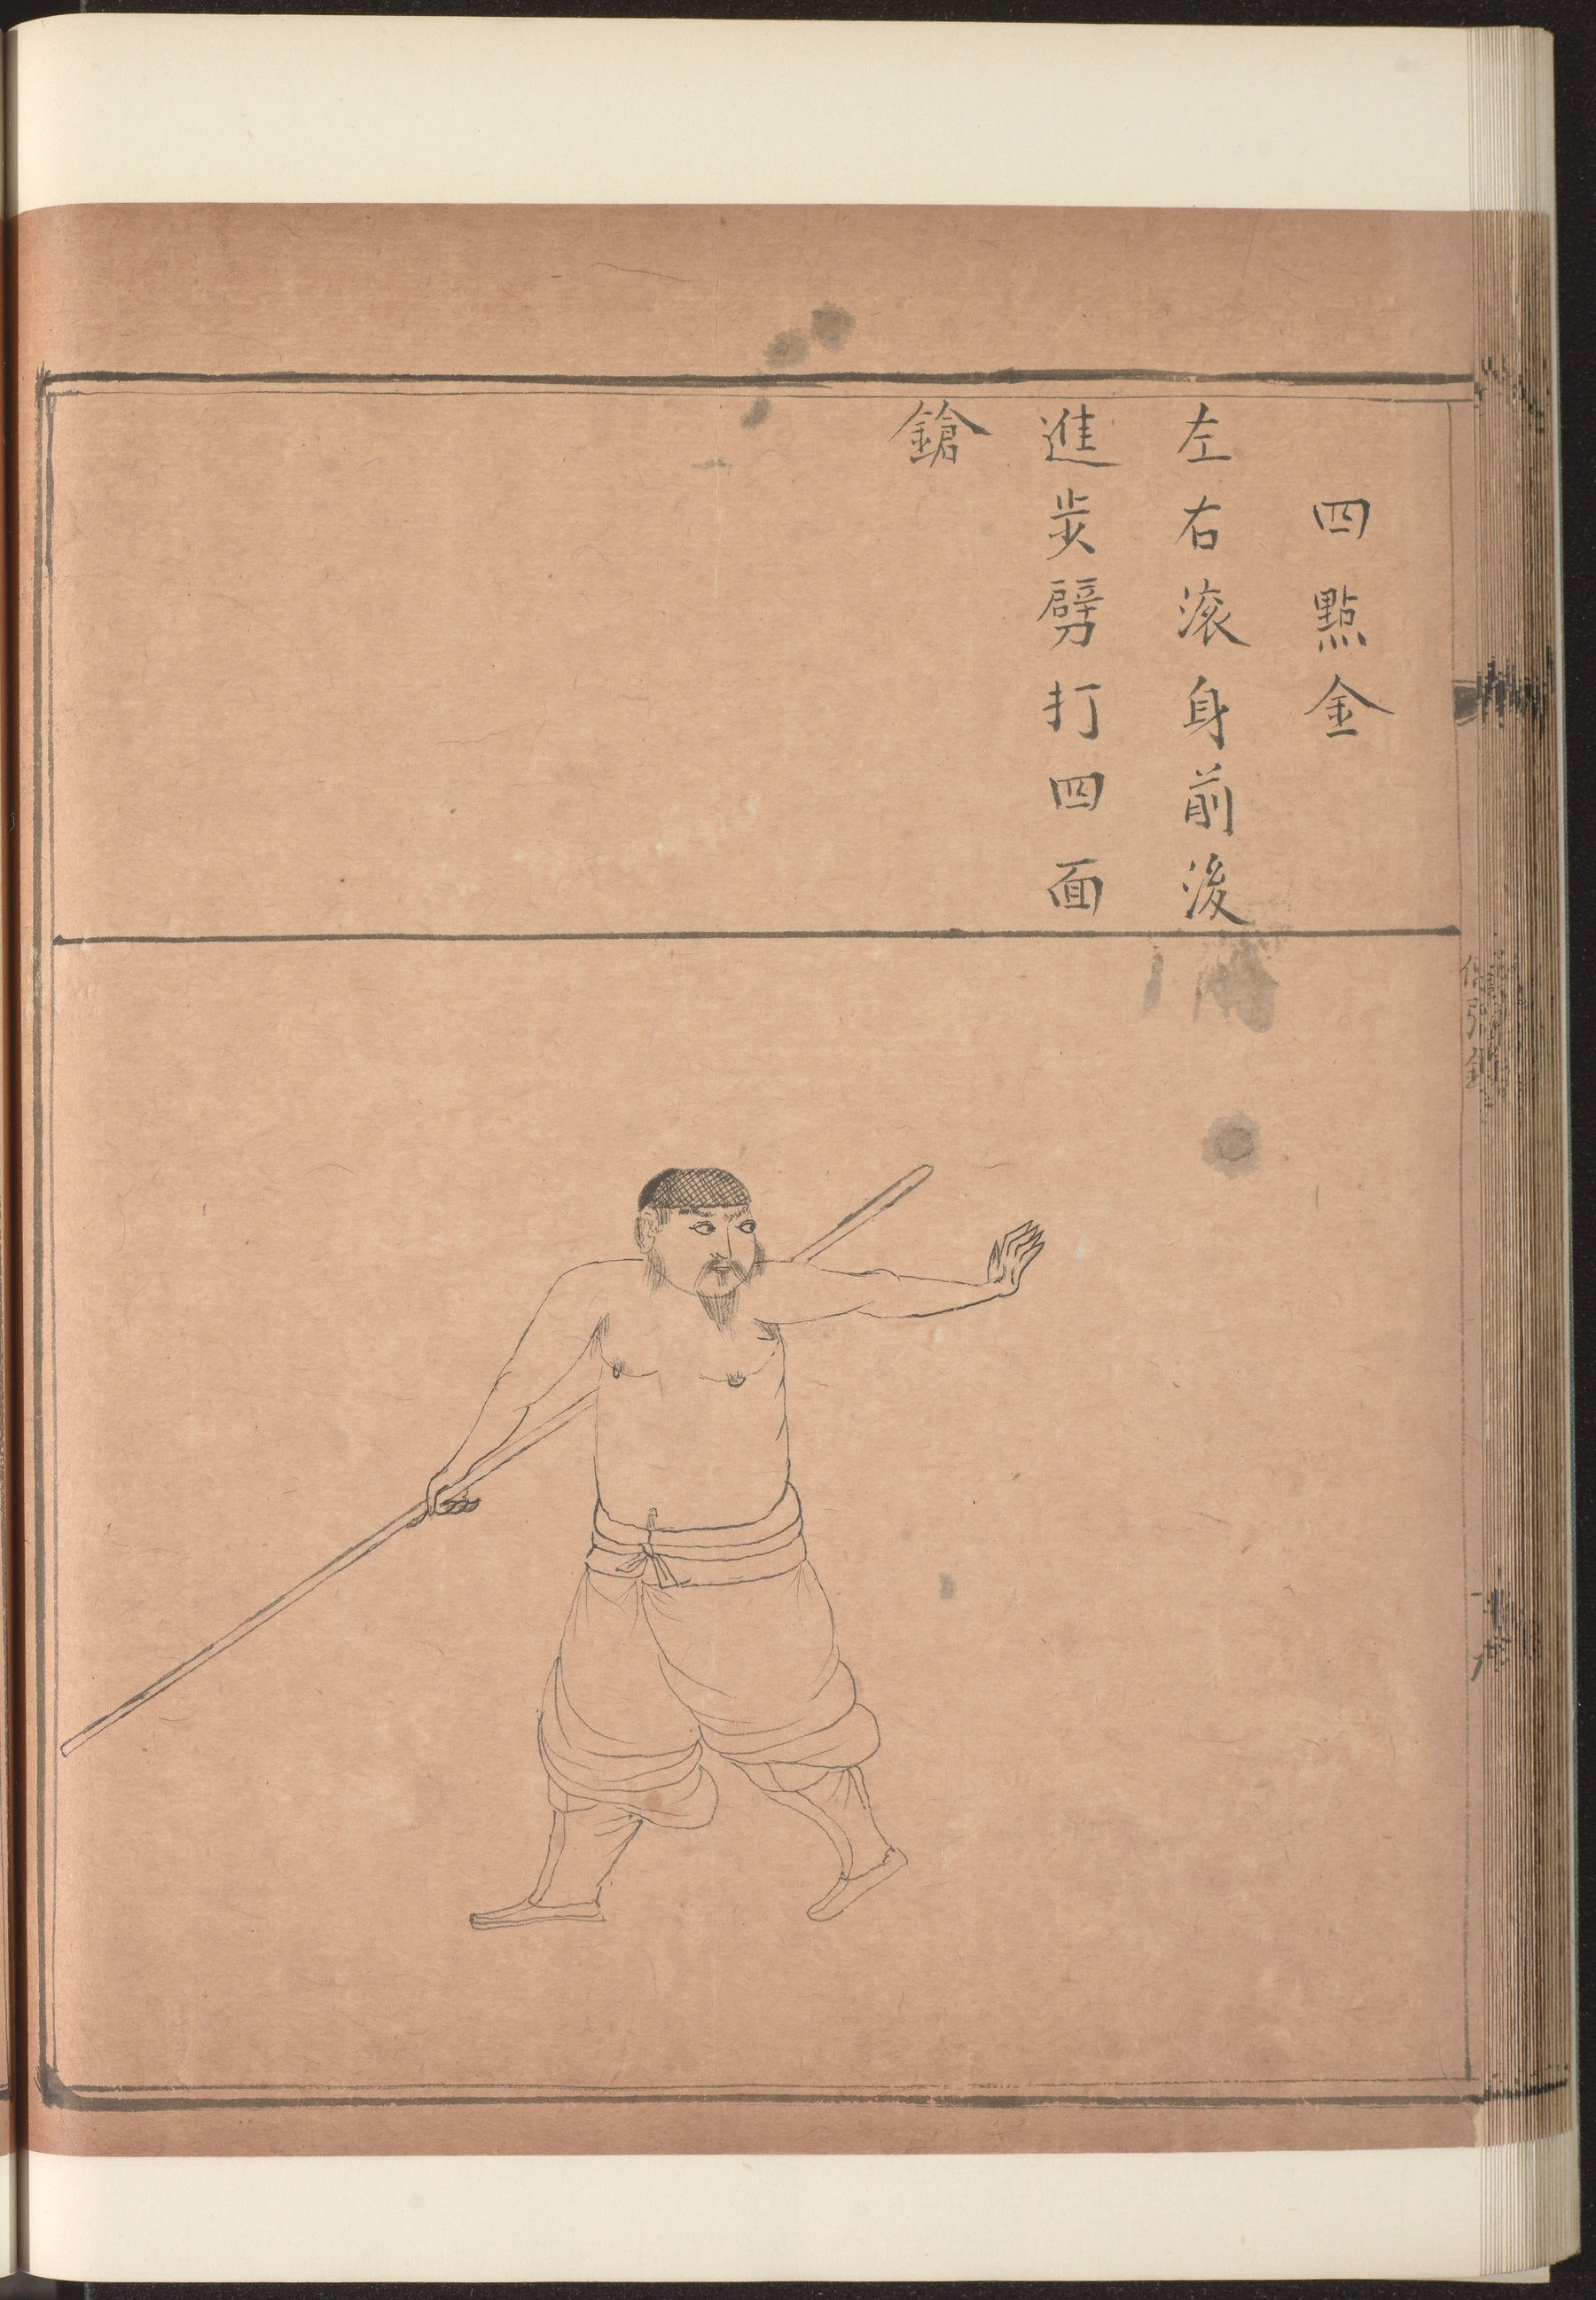 四點金
左右滚身前後
進步劈打四面
鎗